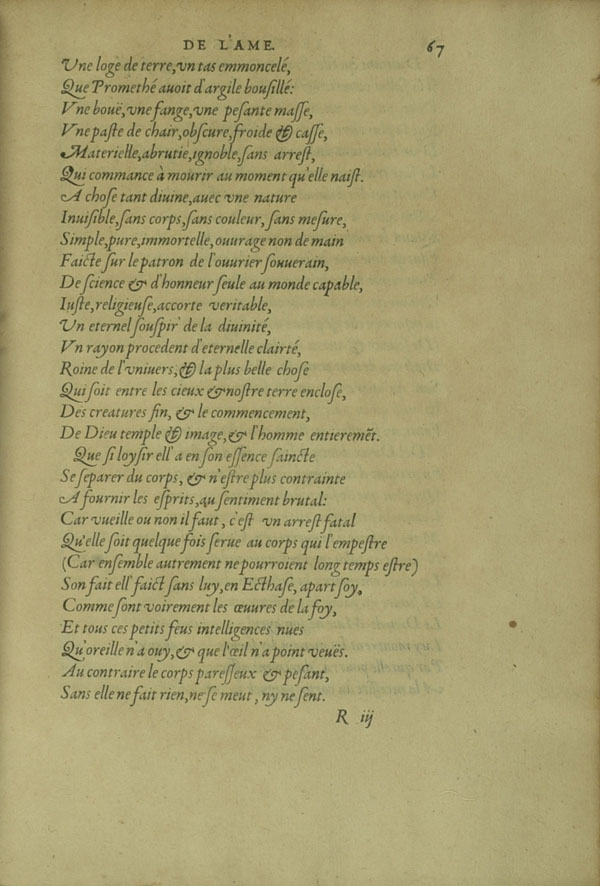 DE L'AME. 67
Vne loge de terre, vn tas emmoncelé,
Que Promethé auoit d'argile bousillé:
Vne bouë, vne fange, vne pesante masse,
Vne paste de chair, obscure, froide & casse,
Materielle, abrutie, ignoble, sans arrest,
Qui commance à mourir au moment qu'elle naist.
A chose tant diuine, auec vne nature
Inuisible, sans corps, sans couleur, sans mesure,
Simple, pure, immortelle, ouurage non de main
Faicte sur le patron de l'ouurier souuerain,
De science & d'honneur seule au monde capable,
Iuste, religieuse, accorte veritable,
Vn eternel souspir de la diuinité,
Vn rayon procedent d'eternelle clairté,
Roine de l'vniuers, & la plus belle chose
Qui soit entre les cieux & nostre terre enclose,
Des creatures fin, & le commencement,
De Dieu temple & image, & l'homme entieremẽt.
Que si loysir ell' a en son essence saincte
Se separer du corps, & n'estre plus contrainte
A fournir les esprits, au sentiment brutal:
Car vueille ou non il faut, c'est vn arrest fatal
Qu'elle soit quelque fois serue au corps qui l'empestre
(Car ensemble autrement ne pourroient long temps estre)
Son fait ell' faict sans luy, en Ecthase, apart soy,
Comme sont voirement les œuures de la foy,
Et tous ces petits feus intelligences nues
Qu'oreille n'a ouy, & que l'œil n'a point veuës.
Au contraire le corps paresseux & pesant,
Sans elle ne fait rien, ne se meut, ny ne sent.
R iij